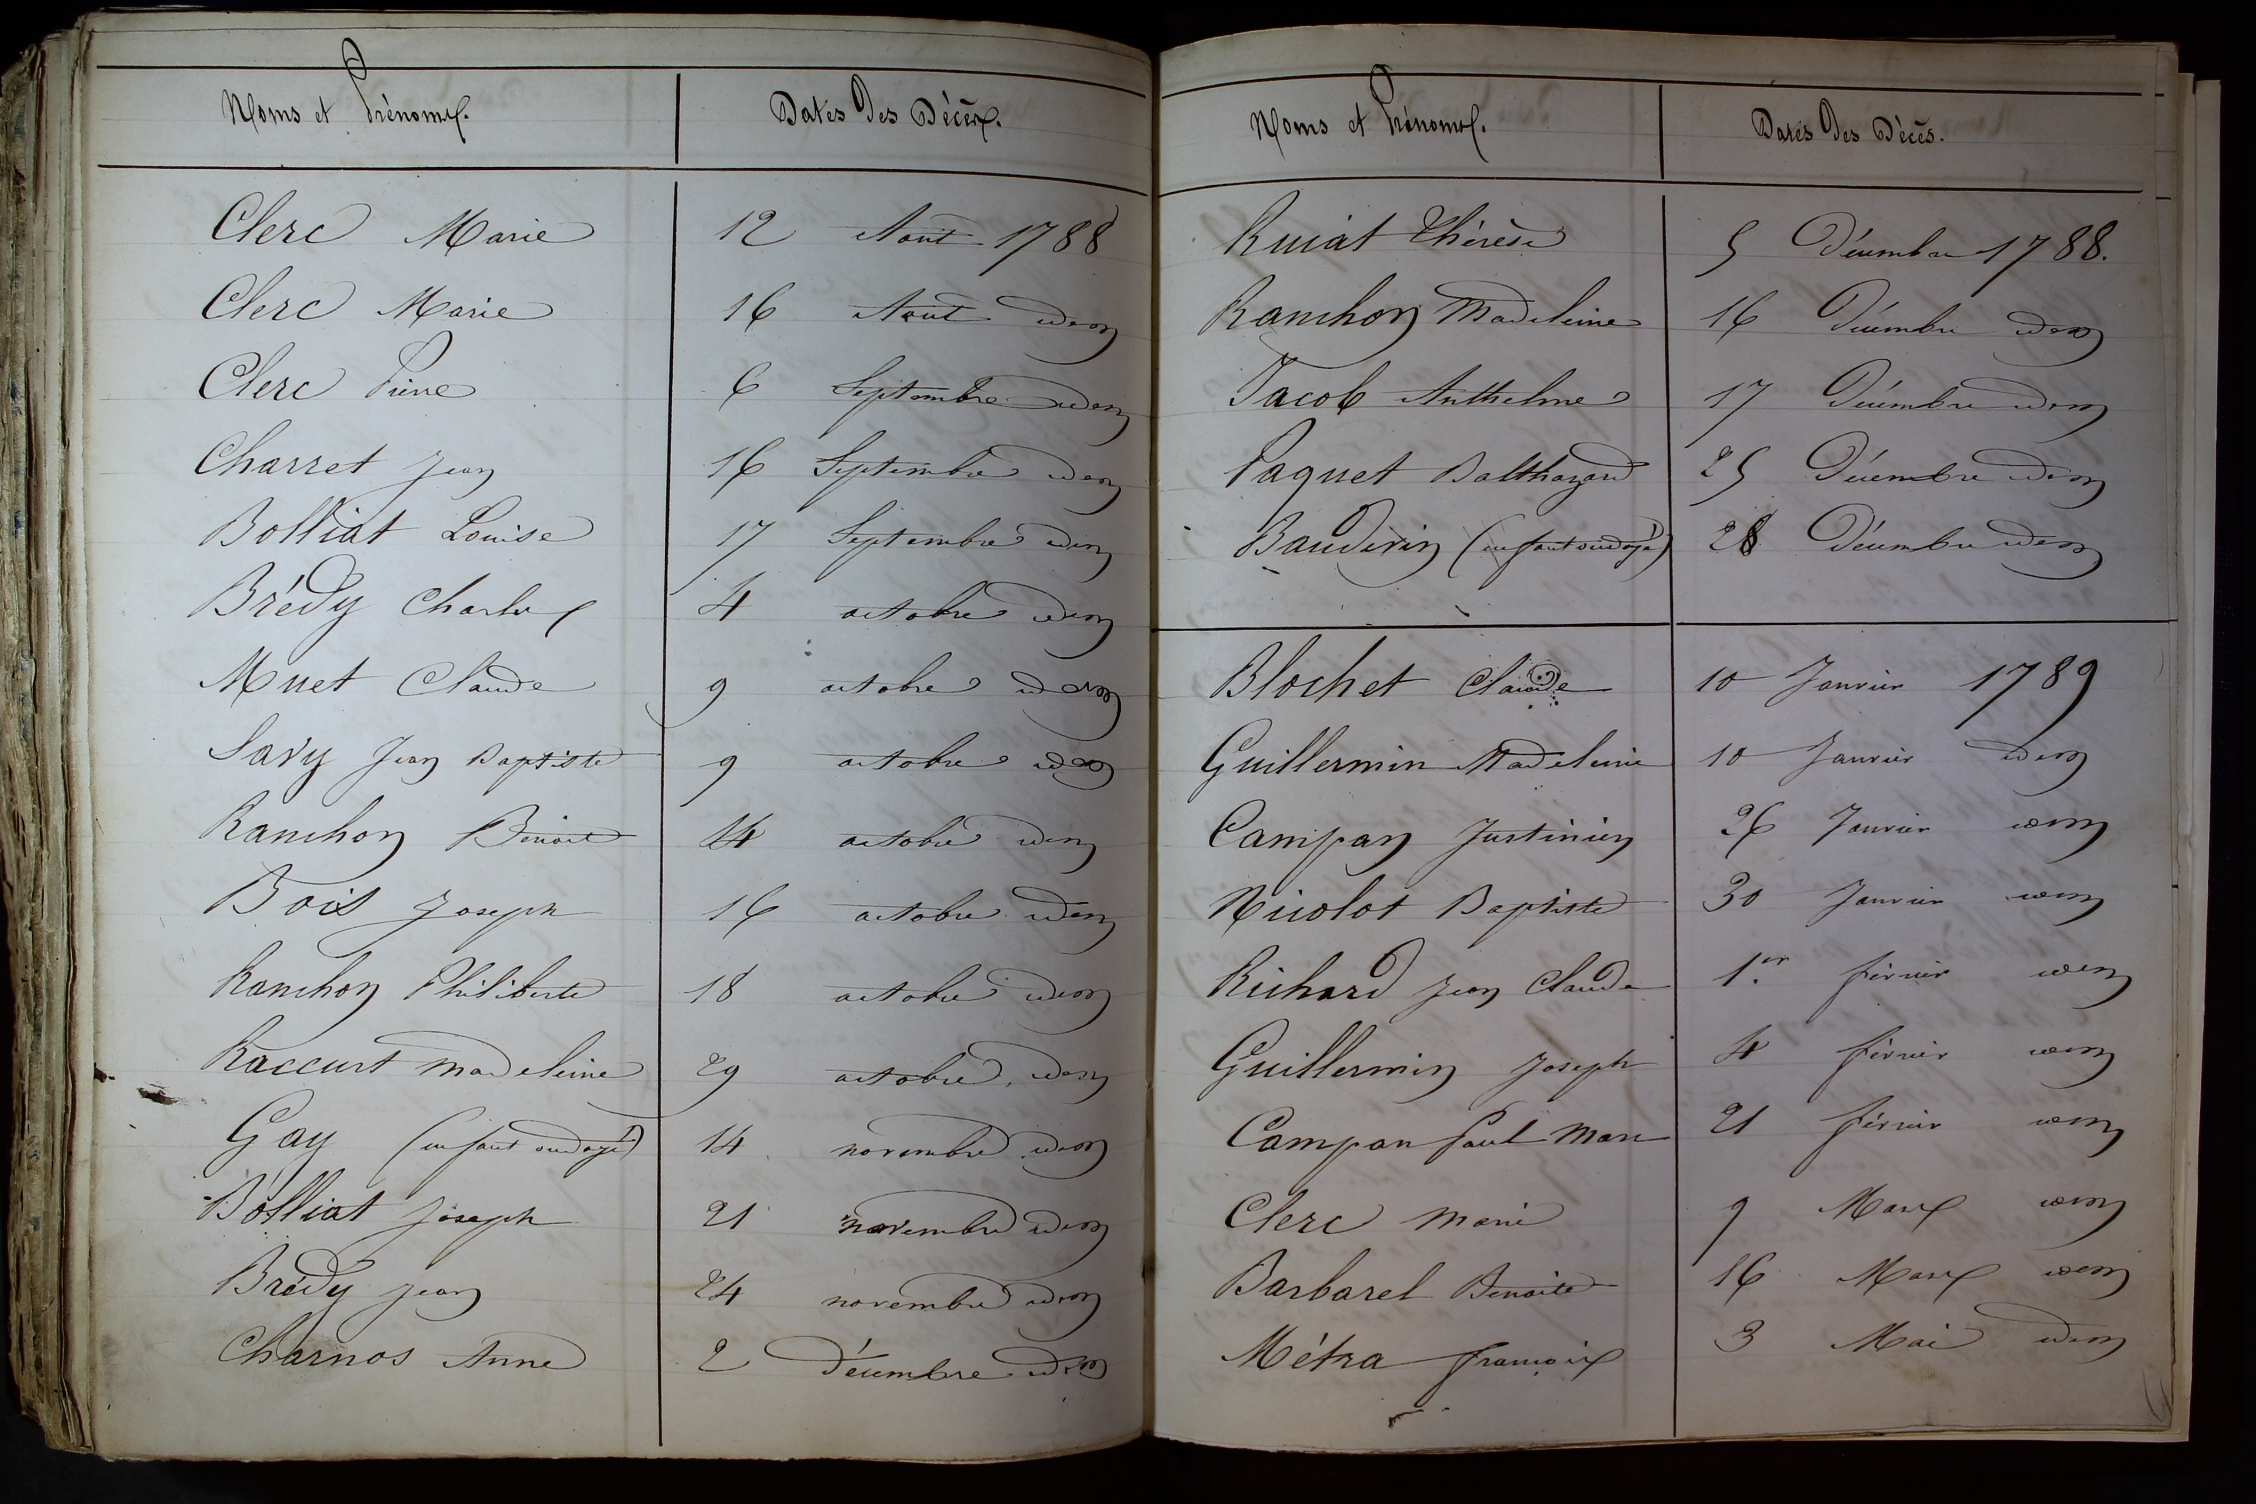 Noms et Prénoms. Dates des Décès.
Clerc Marie 12 Aout 1788
Clerc Marie 16 Aout idem
Clerc Pierre 6 Septembre idem
Charret Jean 16 Septembre idem
Bolliat Louise 17 Septembre idem
Brédy Charles 4 octobre idem
Muet Claude 9 octobre idem
Savy Jean Baptiste 9 octobre idem
Ranchon Benoit 14 octobre idem
Bois Joseph 16 octobre idem
Ranchon Philiberte 18 octobre idem
Raccurt Madeleine 29 octobre idem
Gay (enfant ondoyé) 14 novembre idem
Bolliat Joseph 21 novembre idem
Brédy Jean 24 novembre idem
Charnos Anne 2 Décembre idem
Noms et Prénoms. Dates des Décès.
Ruiat Thérèse 5 Décembre 1788.
Ranchon Madeleine 16 Décembre idem
Jacob Anthelme 17 Décembre idem
Paquet Balthazard 25 Décembre idem
Bauderin (enfant ondoyé) 28 Décembre idem
Blochet Claude 10 Janvier 1789
Guillermin Madeleine 10 Janvier idem
Campan Justinien 26 Janvier idem
Nicolot Baptiste 30 Janvier idem
Richard Jean Claude 1.er février idem
Guillermin Joseph 4 février idem
Campan Paul Marc 21 février idem
Clerc Marie 9 Mars idem
Barbarel Benoite 16 Mars idem
Métra François 3 Mai idem